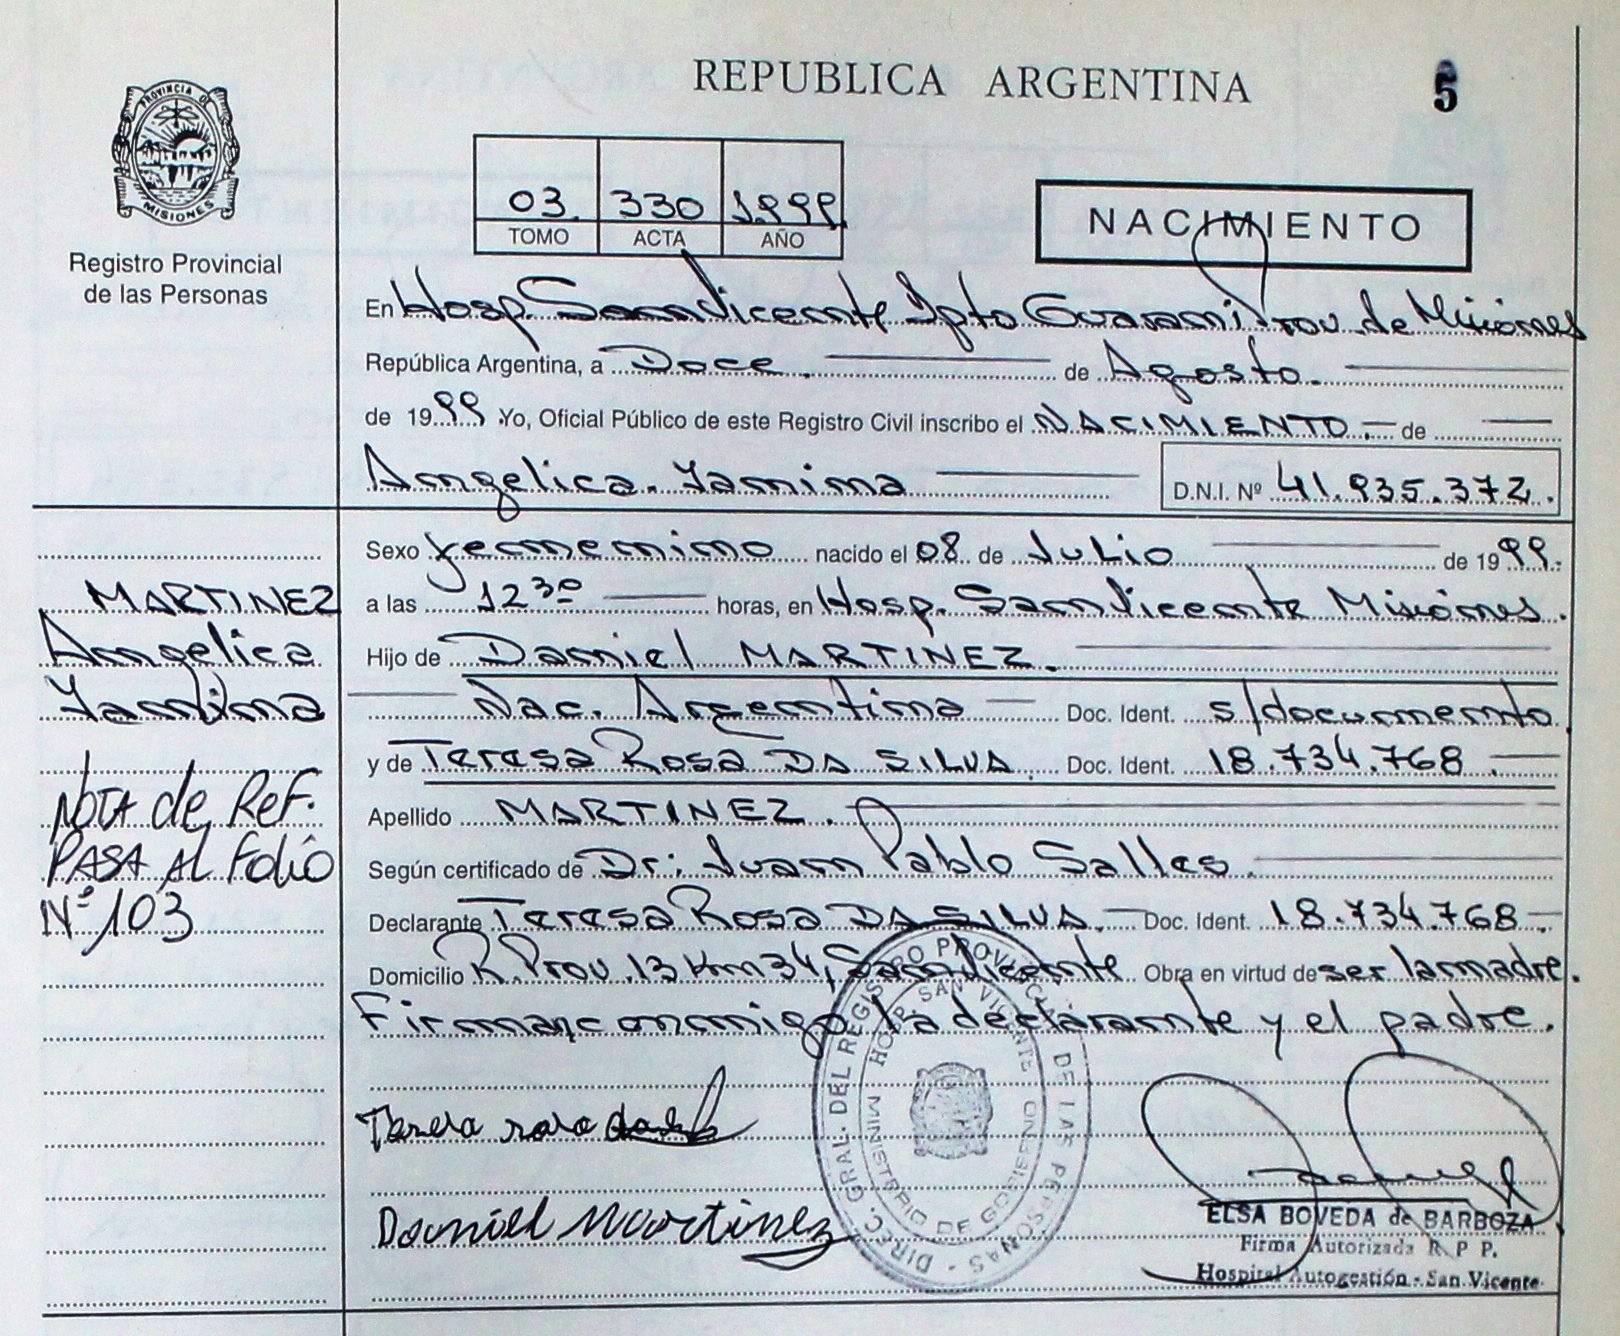 REPUBLICA ARGENTINA
5
PROVINCIA DE
MISIONES
Registro Provincial
de las Personas
03. 330 1999
TOMO ACTA AÑO
NACIMIENTO
En Hosp. San Vicente Dpto Guarani Prov. de Misiones
República Argentina, a Doce. de Agosto.
de 1999 Yo, Oficial Público de este Registro Civil inscribo el NACIMIENTO.- de
Angelica. Yanina
D.N.I. Nº 41.935.372.
Sexo femenino nacido el 08 de Julio de 1999.
a las 12 30 horas, en Hosp. San Vicente Misiones.
Hijo de Daniel MARTINEZ.
Nac. Argentina Doc. Ident. s/documento.
y de Teresa Rosa DA SILVA. Doc. Ident. 18.734.768.
Apellido MARTINEZ.
Según certificado de Dr. Juan Pablo Salles.
Declarante Teresa Rosa DA SILVA. Doc. Ident. 18.734.768
Domicilio R. Prov. 13 Km 34, San Vicente Obra en virtud de ser la madre.
Firman conmigo la declarante y el padre.
MARTINEZ
Angelica
Yanina
NOTA de REF.
PASA AL Folio
Nº 103
DIREC. GRAL. DEL REGISTRO PROVINCIAL DE LAS PERSONAS -
HOSP. SAN VICENTE
MINISTERIO DE GOBIERNO
Daniel Martinez
ELSA BOVEDA de BARBOZA
Firma Autorizada R P P.
Hospital Autogestión - San Vicente